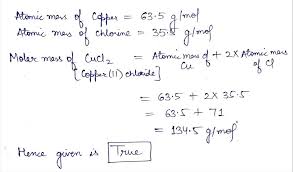 Atomic mass of Copper = 63.5 g/mol
Atomic mass of chlorine = 35.5 g/mol
Molar mass of CuCl2 = Atomic mass of Cu + 2x Atomic mass of Cl
[Copper (II) chloride]
= 63.5 + 2x 35.5
= 63.5 + 71
= 134.5 g/mol
Hence given is True